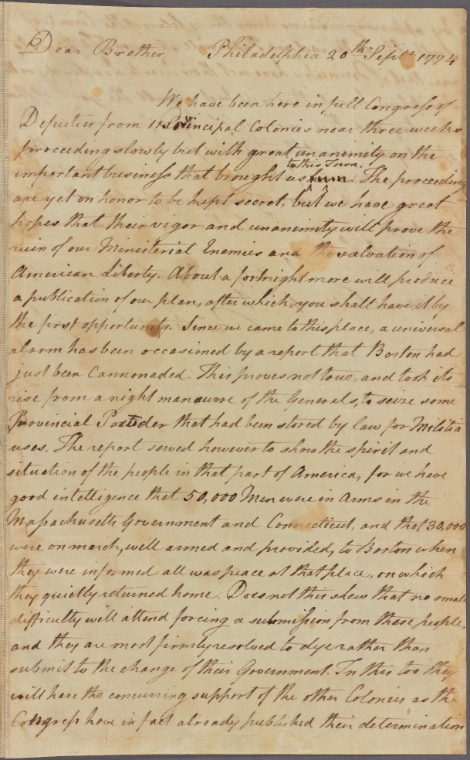 Dear Brother Philadelphia 20th Septr 1774
We have been here in full Congress of
Deputies from 11 Principal Colonies near three weeks
proceeding slowly but with great unanimity on the
to this Town
important business that brought us. The proceeding
are yet on honor to be kept secret, but we have great
hopes that their vigor and unanimity will prove the
ruin of our Ministerial Enemies and the salvation of
American Liberty. About a fortnight more will produce
a publication of our plan, after which, you shall have it by
the first opportunity. Since we came to this place, a universal
alarm has been occasioned by a report that Boston had
just been Cannonaded. This proves not true, and took its
rise from a night manouvre of the Generals, to seize some
Provincial Powder that had been stored by law for Militia
uses. The report served however to shew the spirit and
situation of the people in that part of America, for we have
good intelligence that 50,000 Men were in Arms in the
Massachusetts Government and Connecticut, and that 30,000
were on march, well armed and provided, to Boston when
they were informed all was peace at that place, on which
they quietly returned home. Does not this shew that no small
difficulty will attend forcing a submission from these people,
and they are most firmly resolved to dye rather than
submit to the change of their Government. In this too they
will have the concurring support of the other Colonies as the
Congress have in fact already published their determination